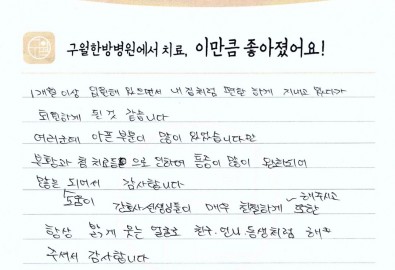 구월한방병원에서 치료, 이만큼 좋아졌어요!
1개월 이상 입원해 있으면서 내 집처럼 편안하게 지내고 있다가
퇴원하게 된 것 같습니다
여러군데 아픈부분이 많이 있었습니다만
치료 으로 인하여 통증이 많이 완화되어
많은 되어서 감사합니다
도움이 간호사 선생님들이 매우 친절하게 해주시고 또한
항상 밝게 웃는 얼굴로 친구.언니 동생처럼 해
주셔서 감사합니다